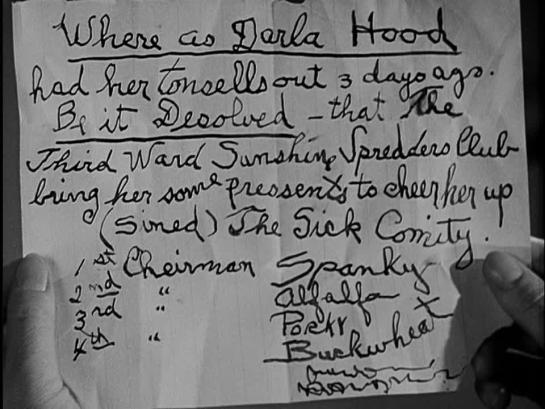 Where as Darla Hood
had her tonsells out 3 days ago.
Be it Desolved - that The
Third Ward Sunshine Spredders Club
bring her some pressents to cheer her up
(sined) The Sick Comity.
1st Cheirman Spanky
2nd " Alfalfa
3rd " Porky
4th " Buckwheat